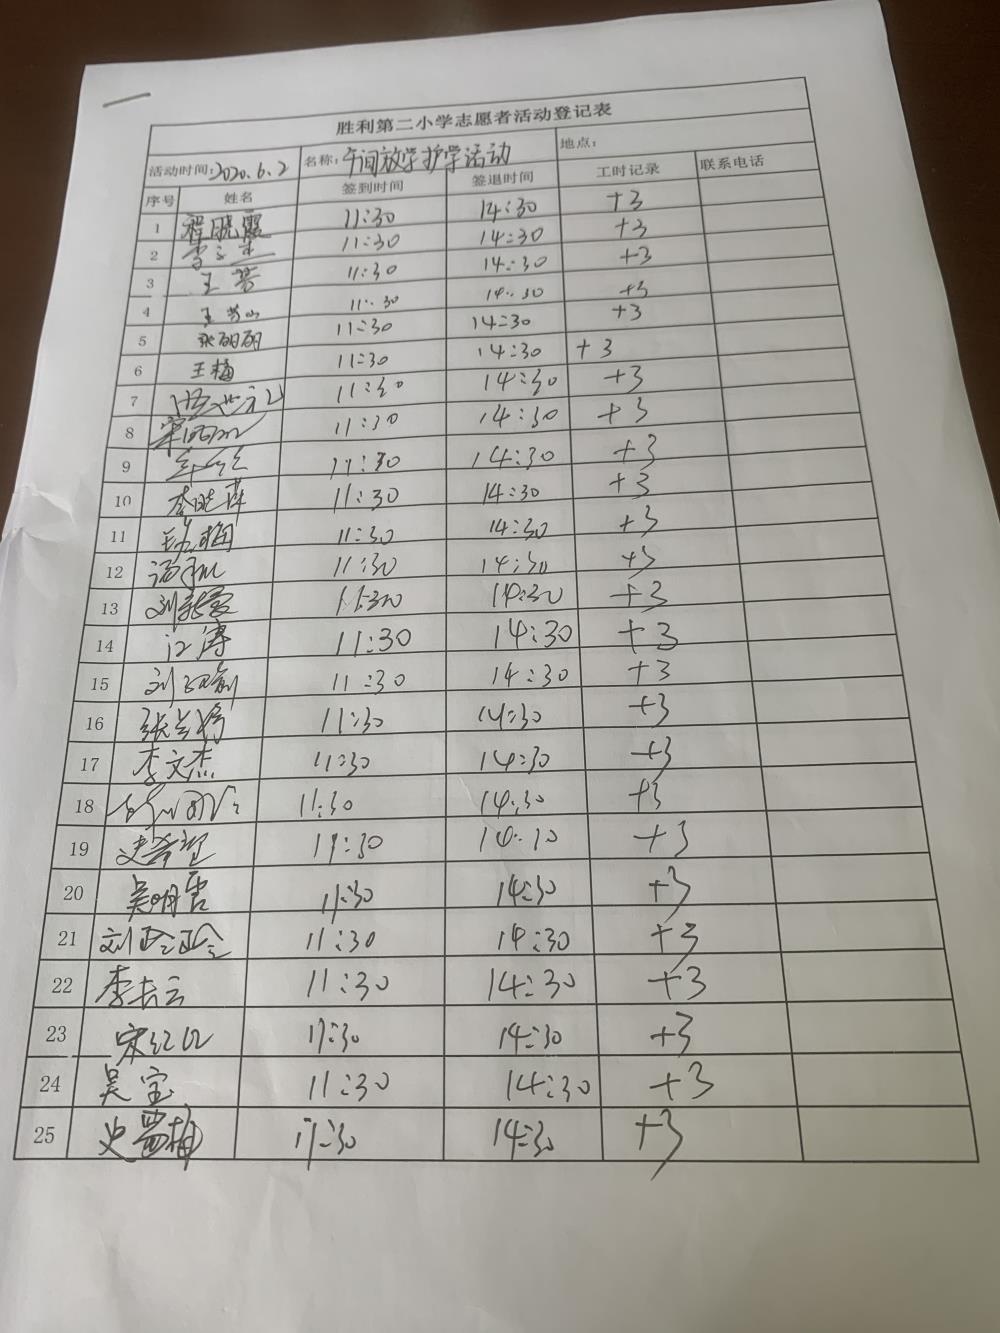 胜利第二小学志愿者活动登记表
活动时间:2020.6.2 名称:午间放学护学活动 地点:
序号 姓名 签到时间 签退时间 工时记录 联系电话
1 程晓霞 11:30 14:30 +3
2 11:30 14:30 +3
3 王芳 11:30 14:30 +3
4 王 11:30 14:30 +3
5 张丽丽 11:30 14:30 +3
6 王梅 11:30 14:30 +3
7 11:30 14:30 +3
8 11:30 14:30 +3
9 11:30 14:30 +3
10 李晓萍 11:30 14:30 +3
11 11:30 14:30 +3
12 11:30 14:30 +3
13 刘 11:30 14:30 +3
14 江涛 11:30 14:30 +3
15 刘 11:30 14:30 +3
16 张 11:30 14:30 +3
17 李文杰 11:30 14:30 +3
18 11:30 14:30 +3
19 史希望 11:30 14:30 +3
20 吴明雪 11:30 14:30 +3
21 刘 11:30 14:30 +3
22 李长云 11:30 14:30 +3
23 宋红 11:30 14:30 +3
24 吴宝 11:30 14:30 +3
25 史 11:30 14:30 +3